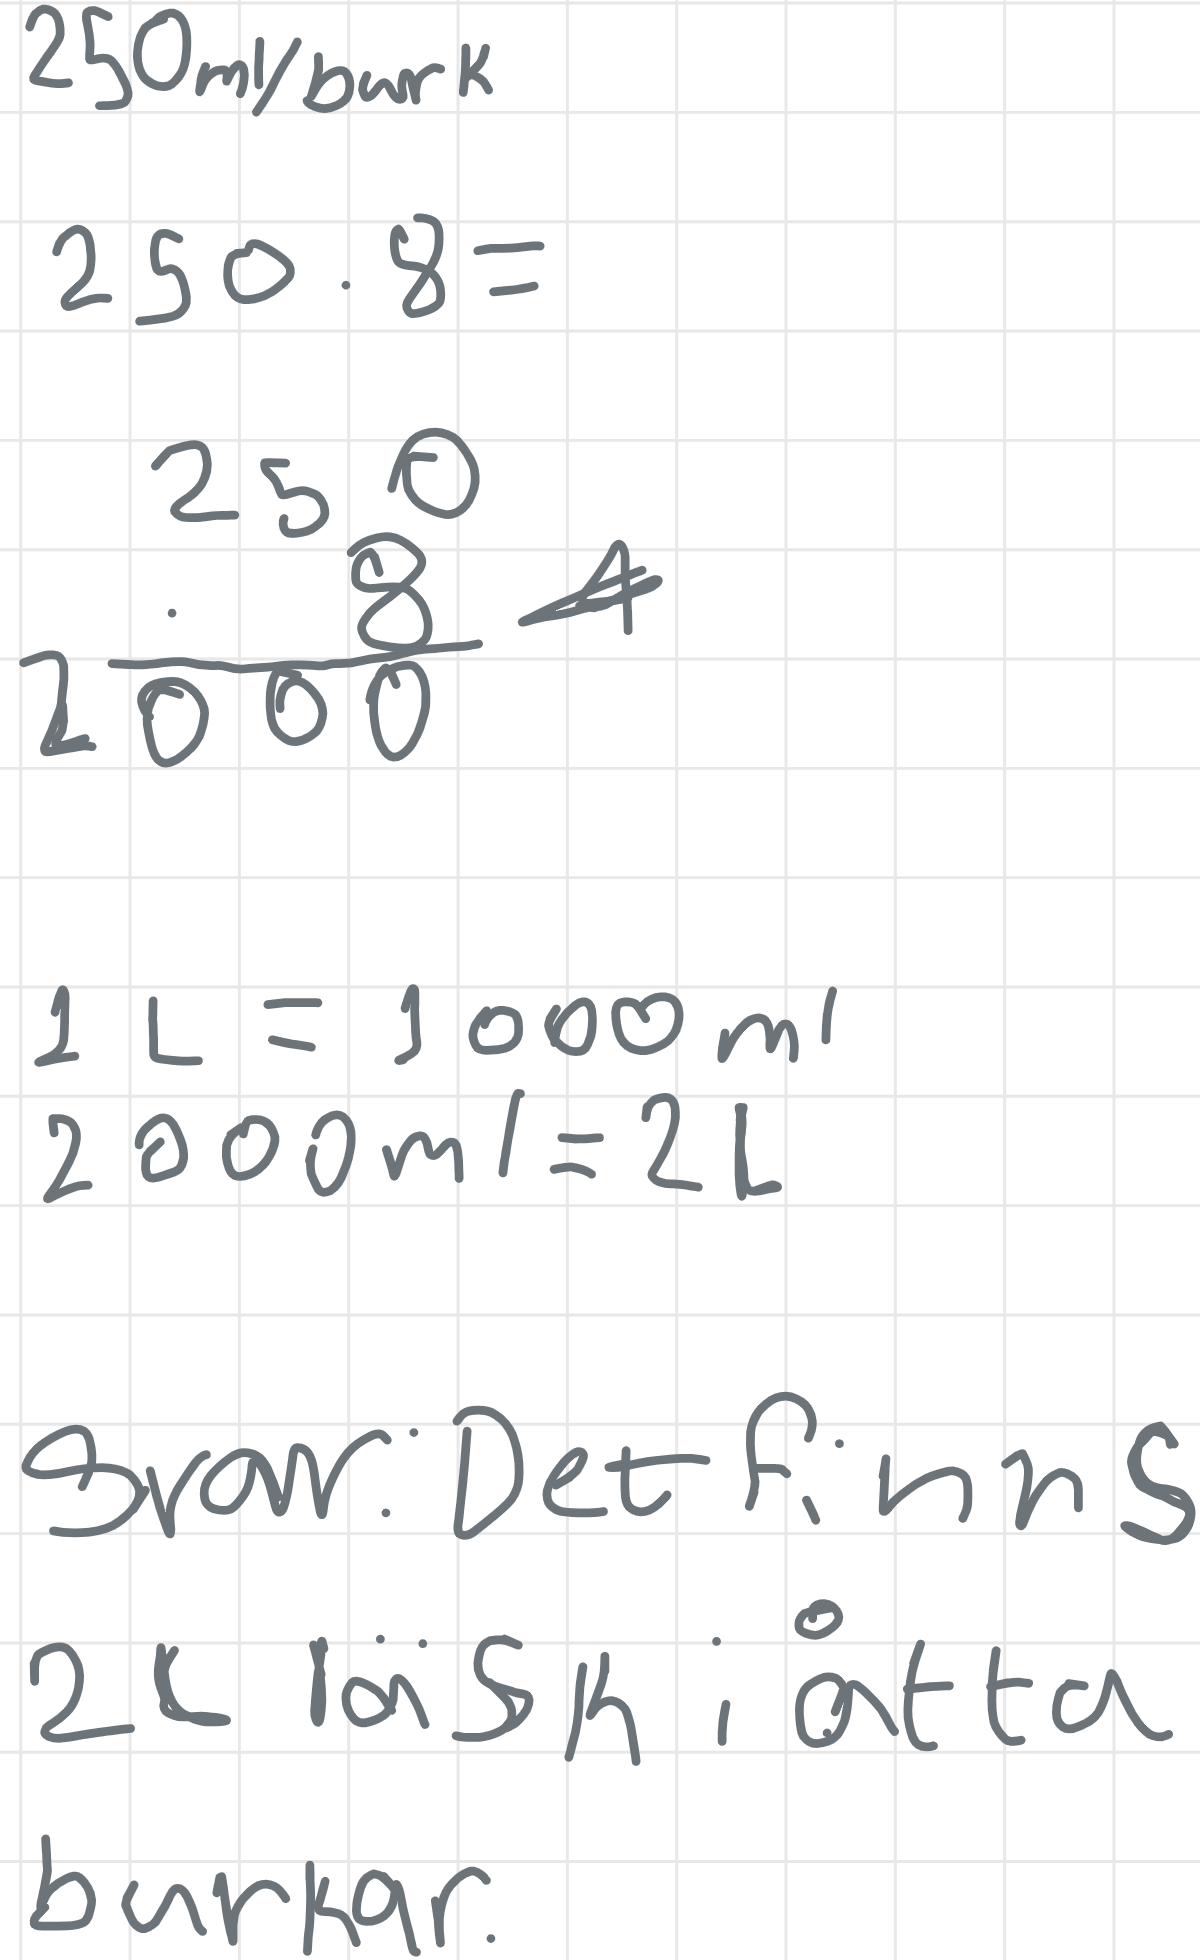 250ml/burk
250 · 8 =
250
· 8 4
2000
1 L = 1000 ml
2000 ml = 2 L
Svar: Det finns
2L läsk i åtta
burkar.